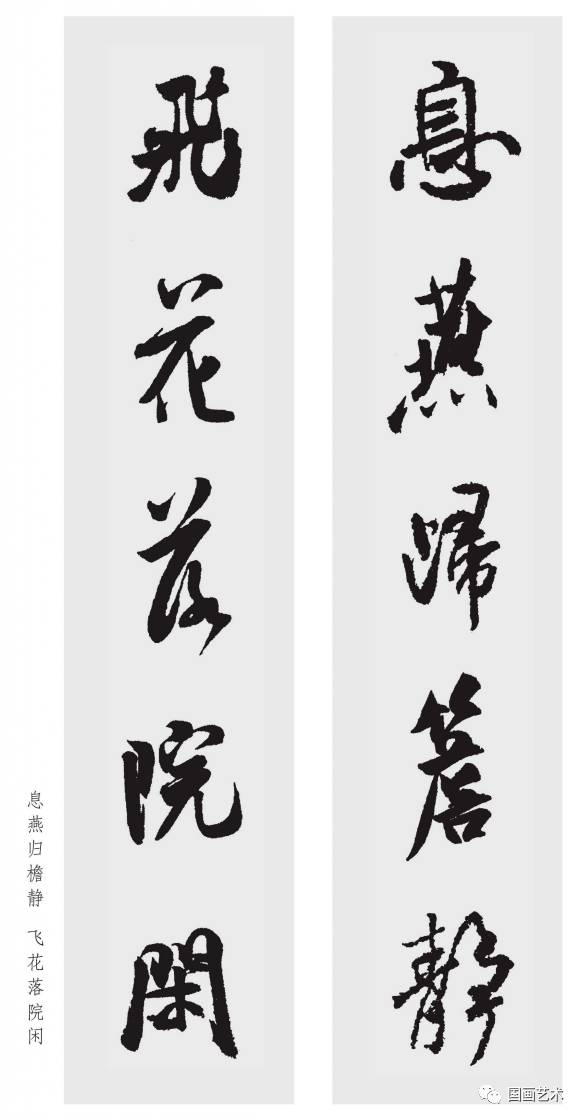 息燕歸簷靜
飛花落院閑
息燕归檐静 飞花落院闲
国画艺术